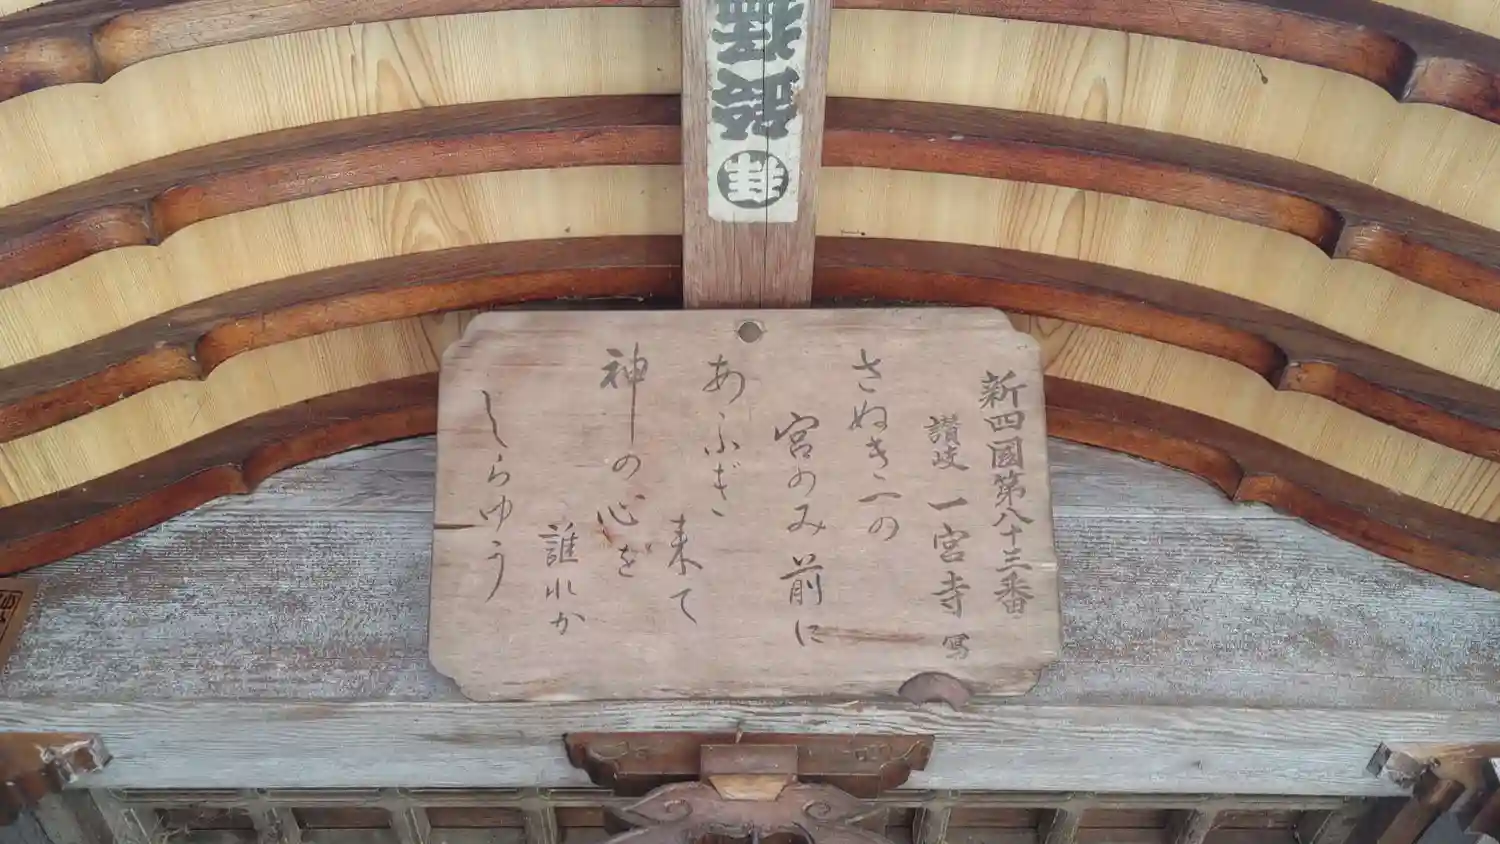 新四國第八十三番
讃岐 一宮寺 寫
さぬき一の
宮のみ前に
あふぎ
来て
神の心を
誰れか
しらゆう